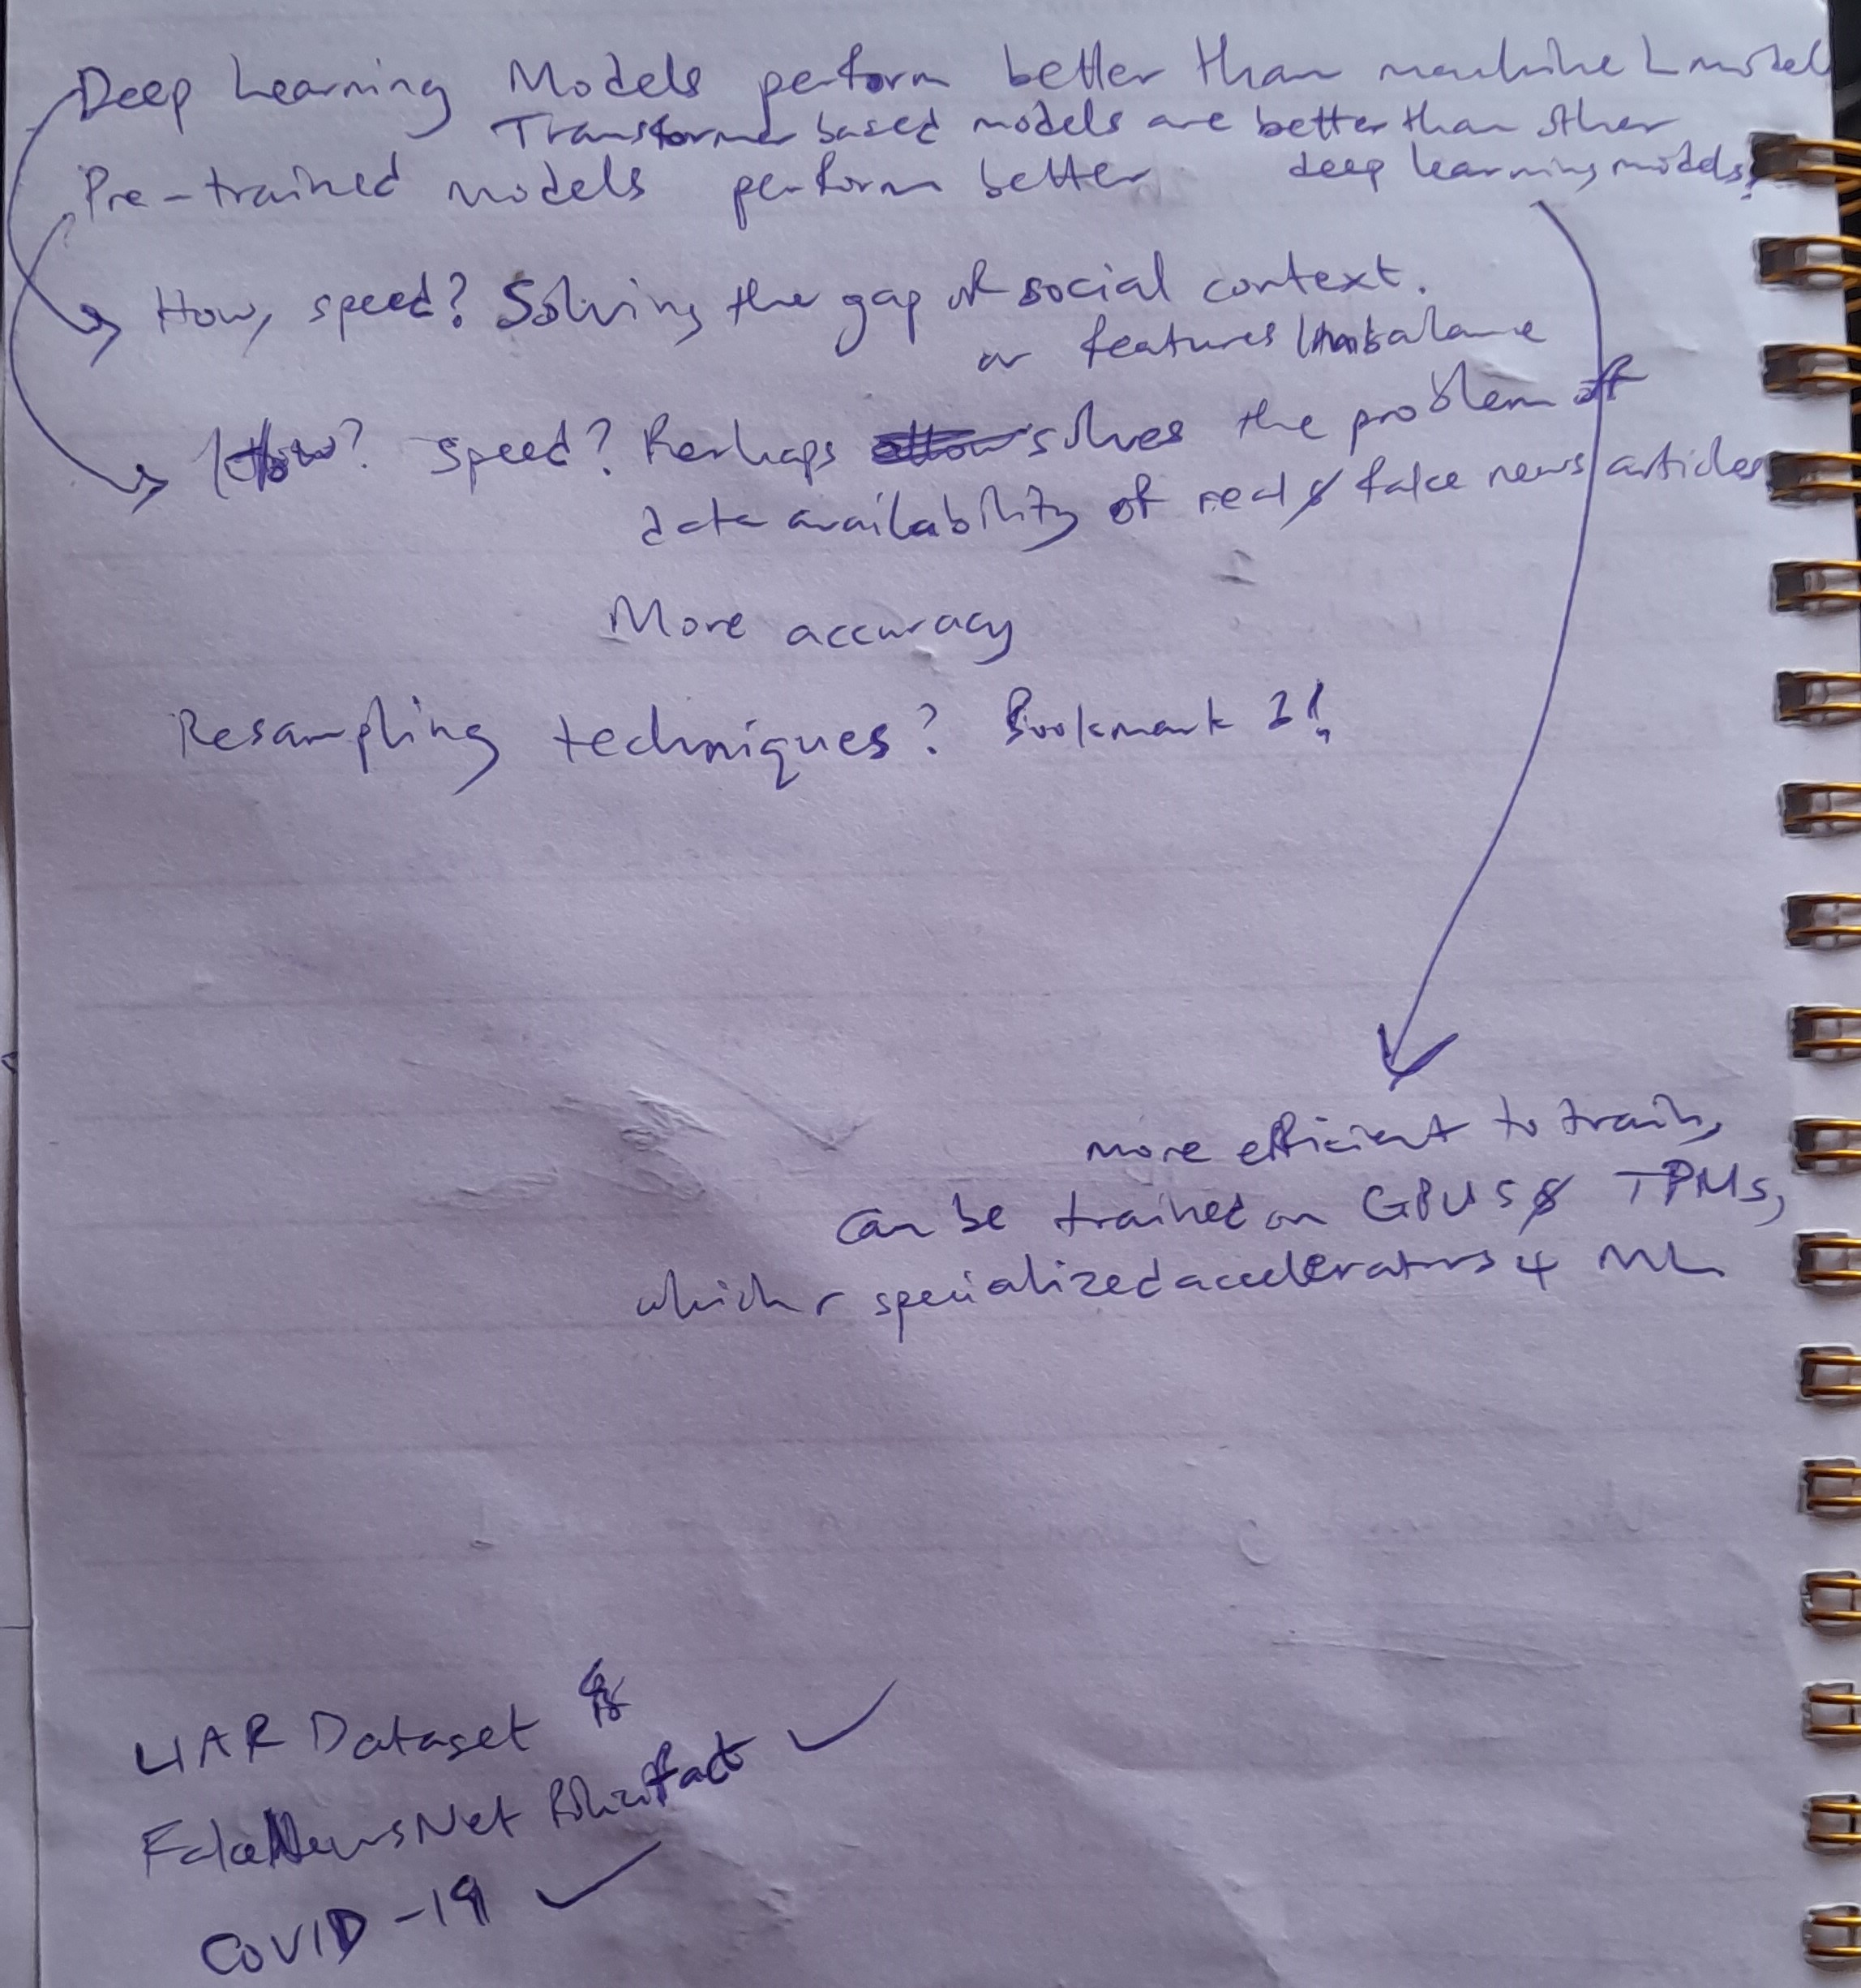 Deep Learning Models perform better than machine L model
Transformer based models are better than other
deep learning models.
Pre-trained models perform better
How, speed? Solving the gap of social context.
or features Imbalance
How? speed? Perhaps solves the problem of
data availability of real & fake news articles
More accuracy
Resampling techniques? Bookmark
more efficient to train,
can be trained on GPUs & TPMs,
which r specialized accelerators 4 ML
LIAR Dataset
FakeNewsNet Politifact
COVID-19